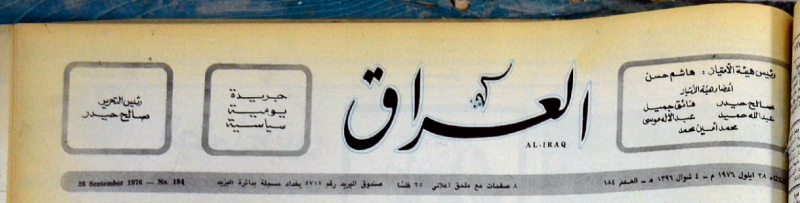 رئيس هيئة الامتياز : هاشم حسن
أعضاء هيئة الامتياز
صالح حيدر    فائق جميل
عبدالله حميد    عبدالاله موسى
محمد أمين محمد
العراق
AL-IRAQ
جريدة
يومية
سياسية
رئيس التحرير
صالح حيدر
٢٨ ايلول ١٩٧٦ م – ٤ شوال ١٣٩٦ هـ – العدد ١٨٤
٨ صفحات مع ملحق اعلاني    ٢٥ فلسا    صندوق البريد رقم ٥٧١٧ بغداد مسجلة بدائرة البريد
28 September 1976 — No. 184